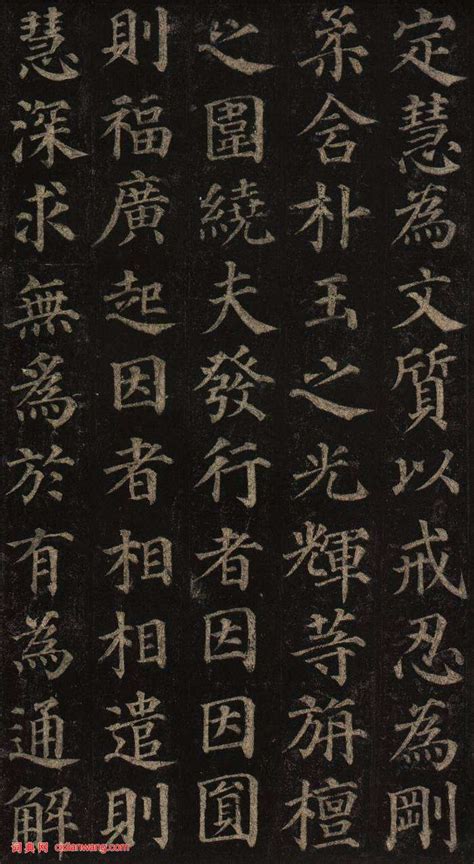 定慧為文質以戒忍為剛
柔含朴玉之光輝等旃檀
之圍繞夫發行者因因圓
則福廣起因者相相遣則
慧深求無爲於有為通解
词典网 cidianwang.com